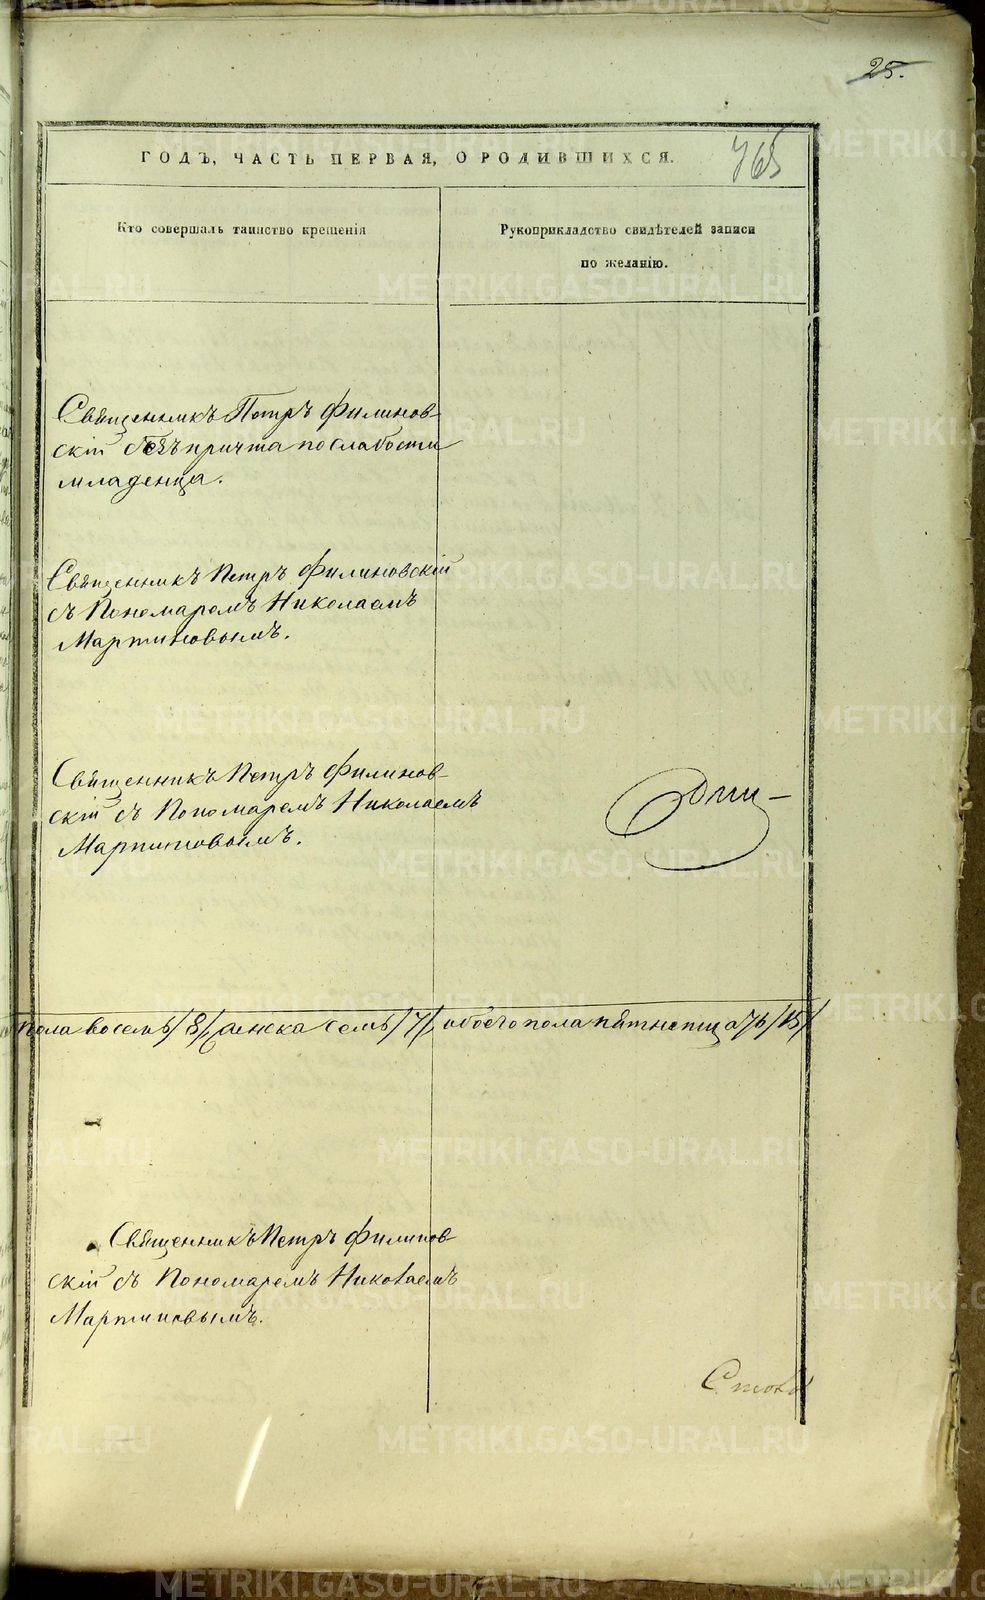 25.
ГОДЪ, ЧАСТЬ ПЕРВАЯ, О РОДИВШИХСЯ.
765
Кто совершалъ таинство крещенія
Рукоприкладство свидѣтелей записи
по желанію.
Священникъ Петръ Филинов-
скій безъ причта по слабости
младенца.
Священникъ Петръ Филиновскій
съ Пономаремъ Николаемъ
Мартиновымъ.
Священникъ Петръ Филинов-
скій съ Пономаремъ Николаемъ
Мартиновымъ.
пола восемь /8/, женска семь /7/, обоего пола пятнатцать /15/
Священникъ Петръ Филинов-
скій съ Пономаремъ Николаемъ
Мартиновымъ.
METRIKI.GASO-URAL.RU